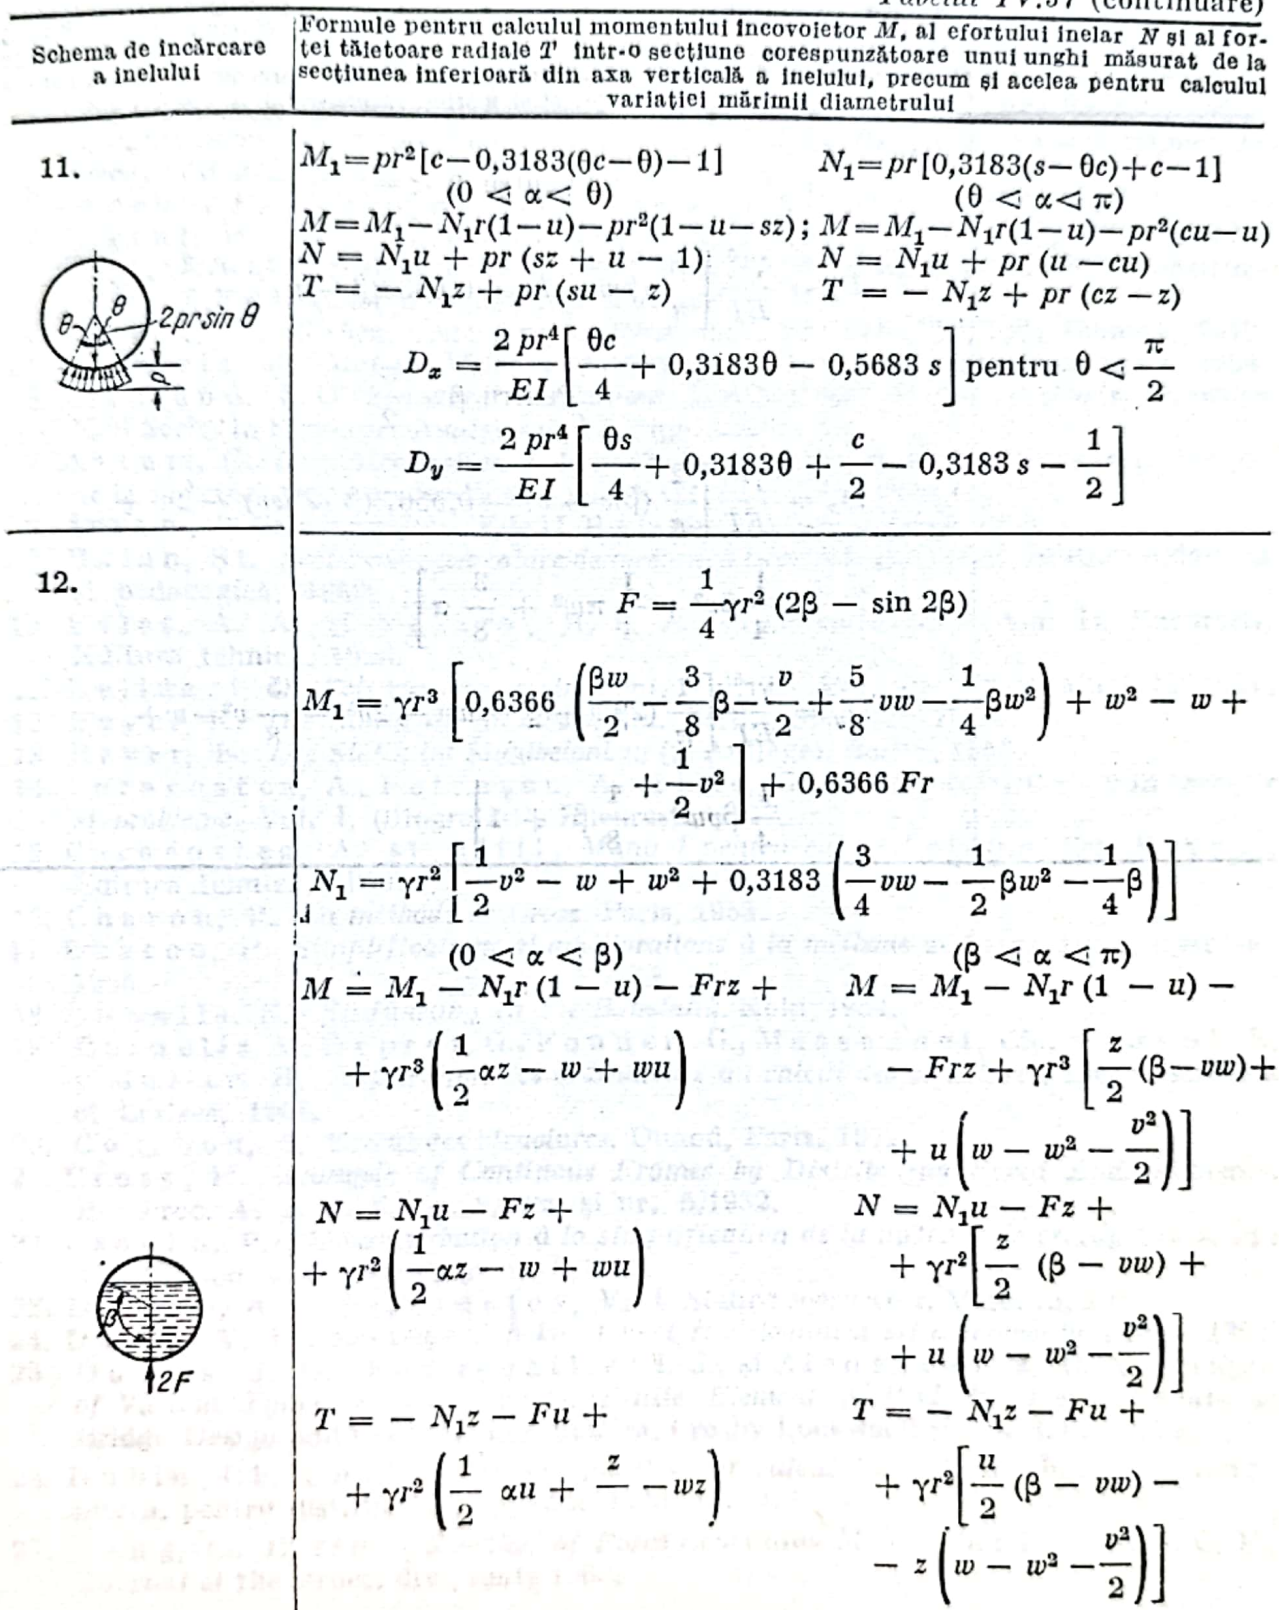 Tabelul IV.57 (continuare)
Schema de încărcare
a inelului
Formule pentru calculul momentului încovoietor M, al efortului inelar N și al for-
ței tăietoare radiale T într-o secțiune corespunzătoare unui unghi măsurat de la
secțiunea inferioară din axa verticală a inelului, precum și acelea pentru calculul
variației mărimii diametrului
11.
M₁=pr²[c−0,3183(θc−θ)−1] N₁=pr[0,3183(s−θc)+c−1]
(0 < α < θ) (θ < α < π)
M=M₁−N₁r(1−u)−pr²(1−u−sz); M=M₁−N₁r(1−u)−pr²(cu−u)
N = N₁u + pr (sz + u − 1); N = N₁u + pr (u − cu)
T = − N₁z + pr (su − z) T = − N₁z + pr (cz − z)
θ θ 2pr sin θ
p
Dₓ = 2 pr⁴/EI [θc/4 + 0,3183θ − 0,5683 s] pentru θ < π/2
D_y = 2 pr⁴/EI [θs/4 + 0,3183θ + c/2 − 0,3183 s − 1/2]
12.
F = 1/4 γr² (2β − sin 2β)
M₁ = γr³ [0,6366 (βw/2 − 3/8 β − v/2 + 5/8 vw − 1/4 βw²) + w² − w +
+ 1/2 v²] + 0,6366 Fr
N₁ = γr² [1/2 v² − w + w² + 0,3183 (3/4 vw − 1/2 βw² − 1/4 β)]
(0 < α < β) (β < α < π)
M = M₁ − N₁r (1 − u) − Frz + M = M₁ − N₁r (1 − u) −
+ γr³ (1/2 αz − w + wu) − Frz + γr³ [z/2 (β−vw)+
+ u (w − w² − v²/2)]
N = N₁u − Fz + N = N₁u − Fz +
+ γr² (1/2 αz − w + wu) + γr² [z/2 (β − vw) +
+ u (w − w² − v²/2)]
β
2F
T = − N₁z − Fu + T = − N₁z − Fu +
+ γr² (1/2 αu + z/ − wz) + γr² [u/2 (β − vw) −
− z (w − w² − v²/2)]